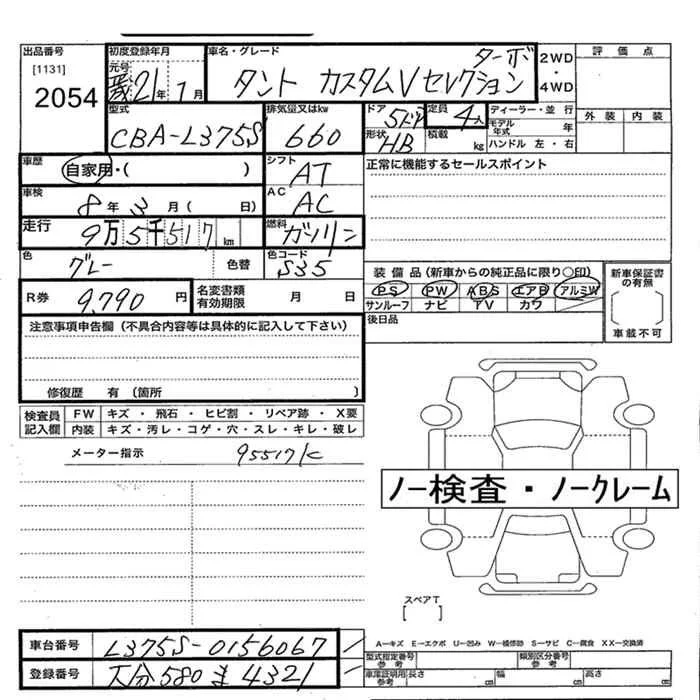 出品番号 初度登録年月 車名・グレード ターボ 2WD 評価点
[1131] 元号 21年 1月 タント カスタムVセレクション ・ 4WD
2054 型式 排気量又はkw ドア 5ドア 定員 4人 ディーラー・並行 外装 内装
CBA-L375S 660 形状 HB 積載 kg モデル年式 年 ハンドル 左・右
車歴 自家用・( ) シフト AT 正常に機能するセールスポイント
車検 8年 3月 ( 日) AC AC
走行 9万5千517km 燃料 ガソリン
色 グレー 色替 色コード S35
装備品(新車からの純正品に限り〇印) 新車保証書の有無
R券 9,790円 名変書類有効期限 月 日 PS PW ABS エアB アルミW
サンルーフ ナビ AV カワ 車載不可
注意事項申告欄(不具合内容等は具体的に記入して下さい) 後日品
修復歴 有(箇所 )
検査員記入欄 FW キズ・飛石・ヒビ割・リペア跡・X要
内装 キズ・汚レ・コゲ・穴・スレ・キレ・破レ
メーター指示 95517K
ノー検査・ノークレーム
スペアT
[ ]
車台番号 L375S-0156067
A-キズ E-エクボ U-凹み W-補修跡 S-サビ C-腐食 XX-交換済
型式指定番号 参考 類別区分番号 参考
登録番号 大分 580 ま 4321
車庫証明用 参考 長さ cm 幅 cm 高さ cm